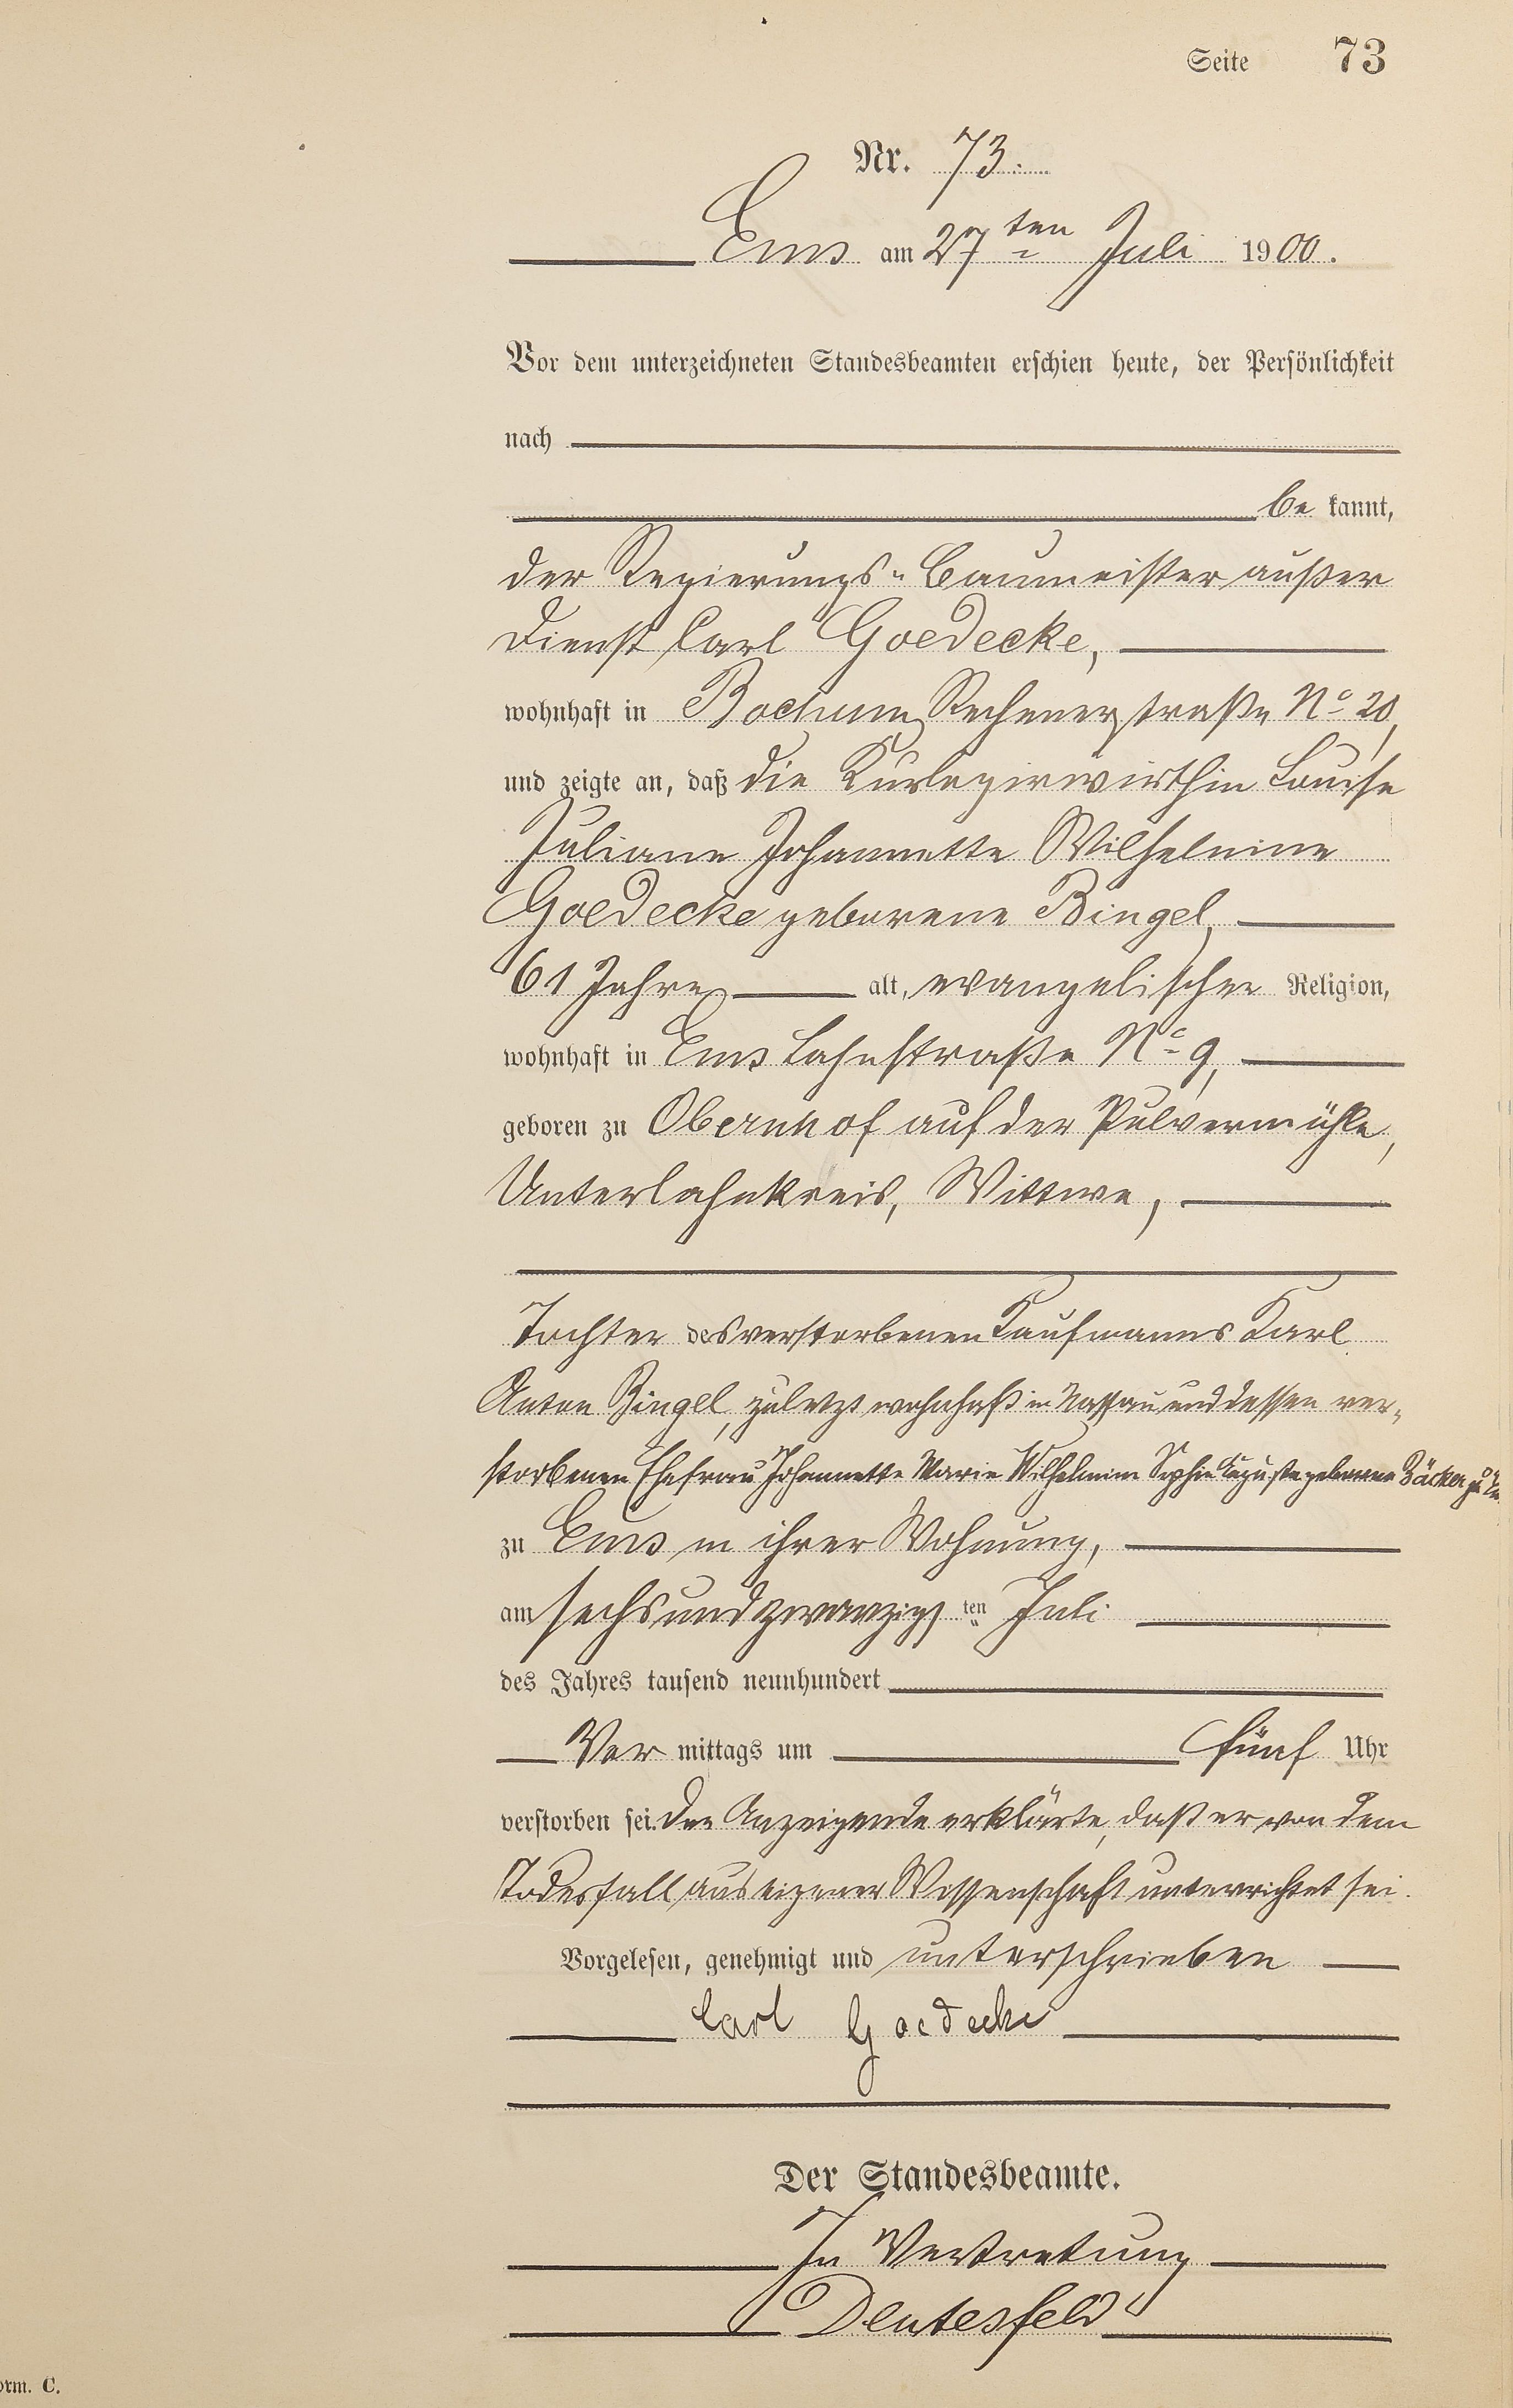 Seite 73
Nr. 73.
Ems am 27ten Juli 1900.
Vor dem unterzeichneten Standesbeamten erschien heute, der Persönlichkeit
nach
be kannt,
der Regierungs-Baumeister außer
Dienst Carl Goedecke,
wohnhaft in Bochum, Rechenerstraße No 20,
und zeigte an, daß die Kurlogirwirthin Louise
Juliane Johannette Wilhelmine
Goedecke geborene Bingel,
61 Jahre alt, evangelischer Religion,
wohnhaft in Ems Lahnstraße No 9,
geboren zu Obernhof auf der Pulvermühle,
Unterlahnkreis, Wittwe,
Tochter des verstorbenen Kaufmanns Karl
Anton Bingel, zuletzt wohnhaft in Nassau und dessen ver-
storbenen Ehefrau Johannette Marie Wilhelmine Sophie Auguste geborene Bäcker
zu Ems in ihrer Wohnung,
am sechsundzwanzigsten Juli
des Jahres tausend neunhundert
Vor mittags um fünf Uhr
verstorben sei. Der Anzeigende erklärte, daß er von dem
Todesfall aus eigener Wissenschaft unterrichtet sei.
Vorgelesen, genehmigt und unterschrieben
Carl Goedecke
Der Standesbeamte.
In Vertretung
orm. C.